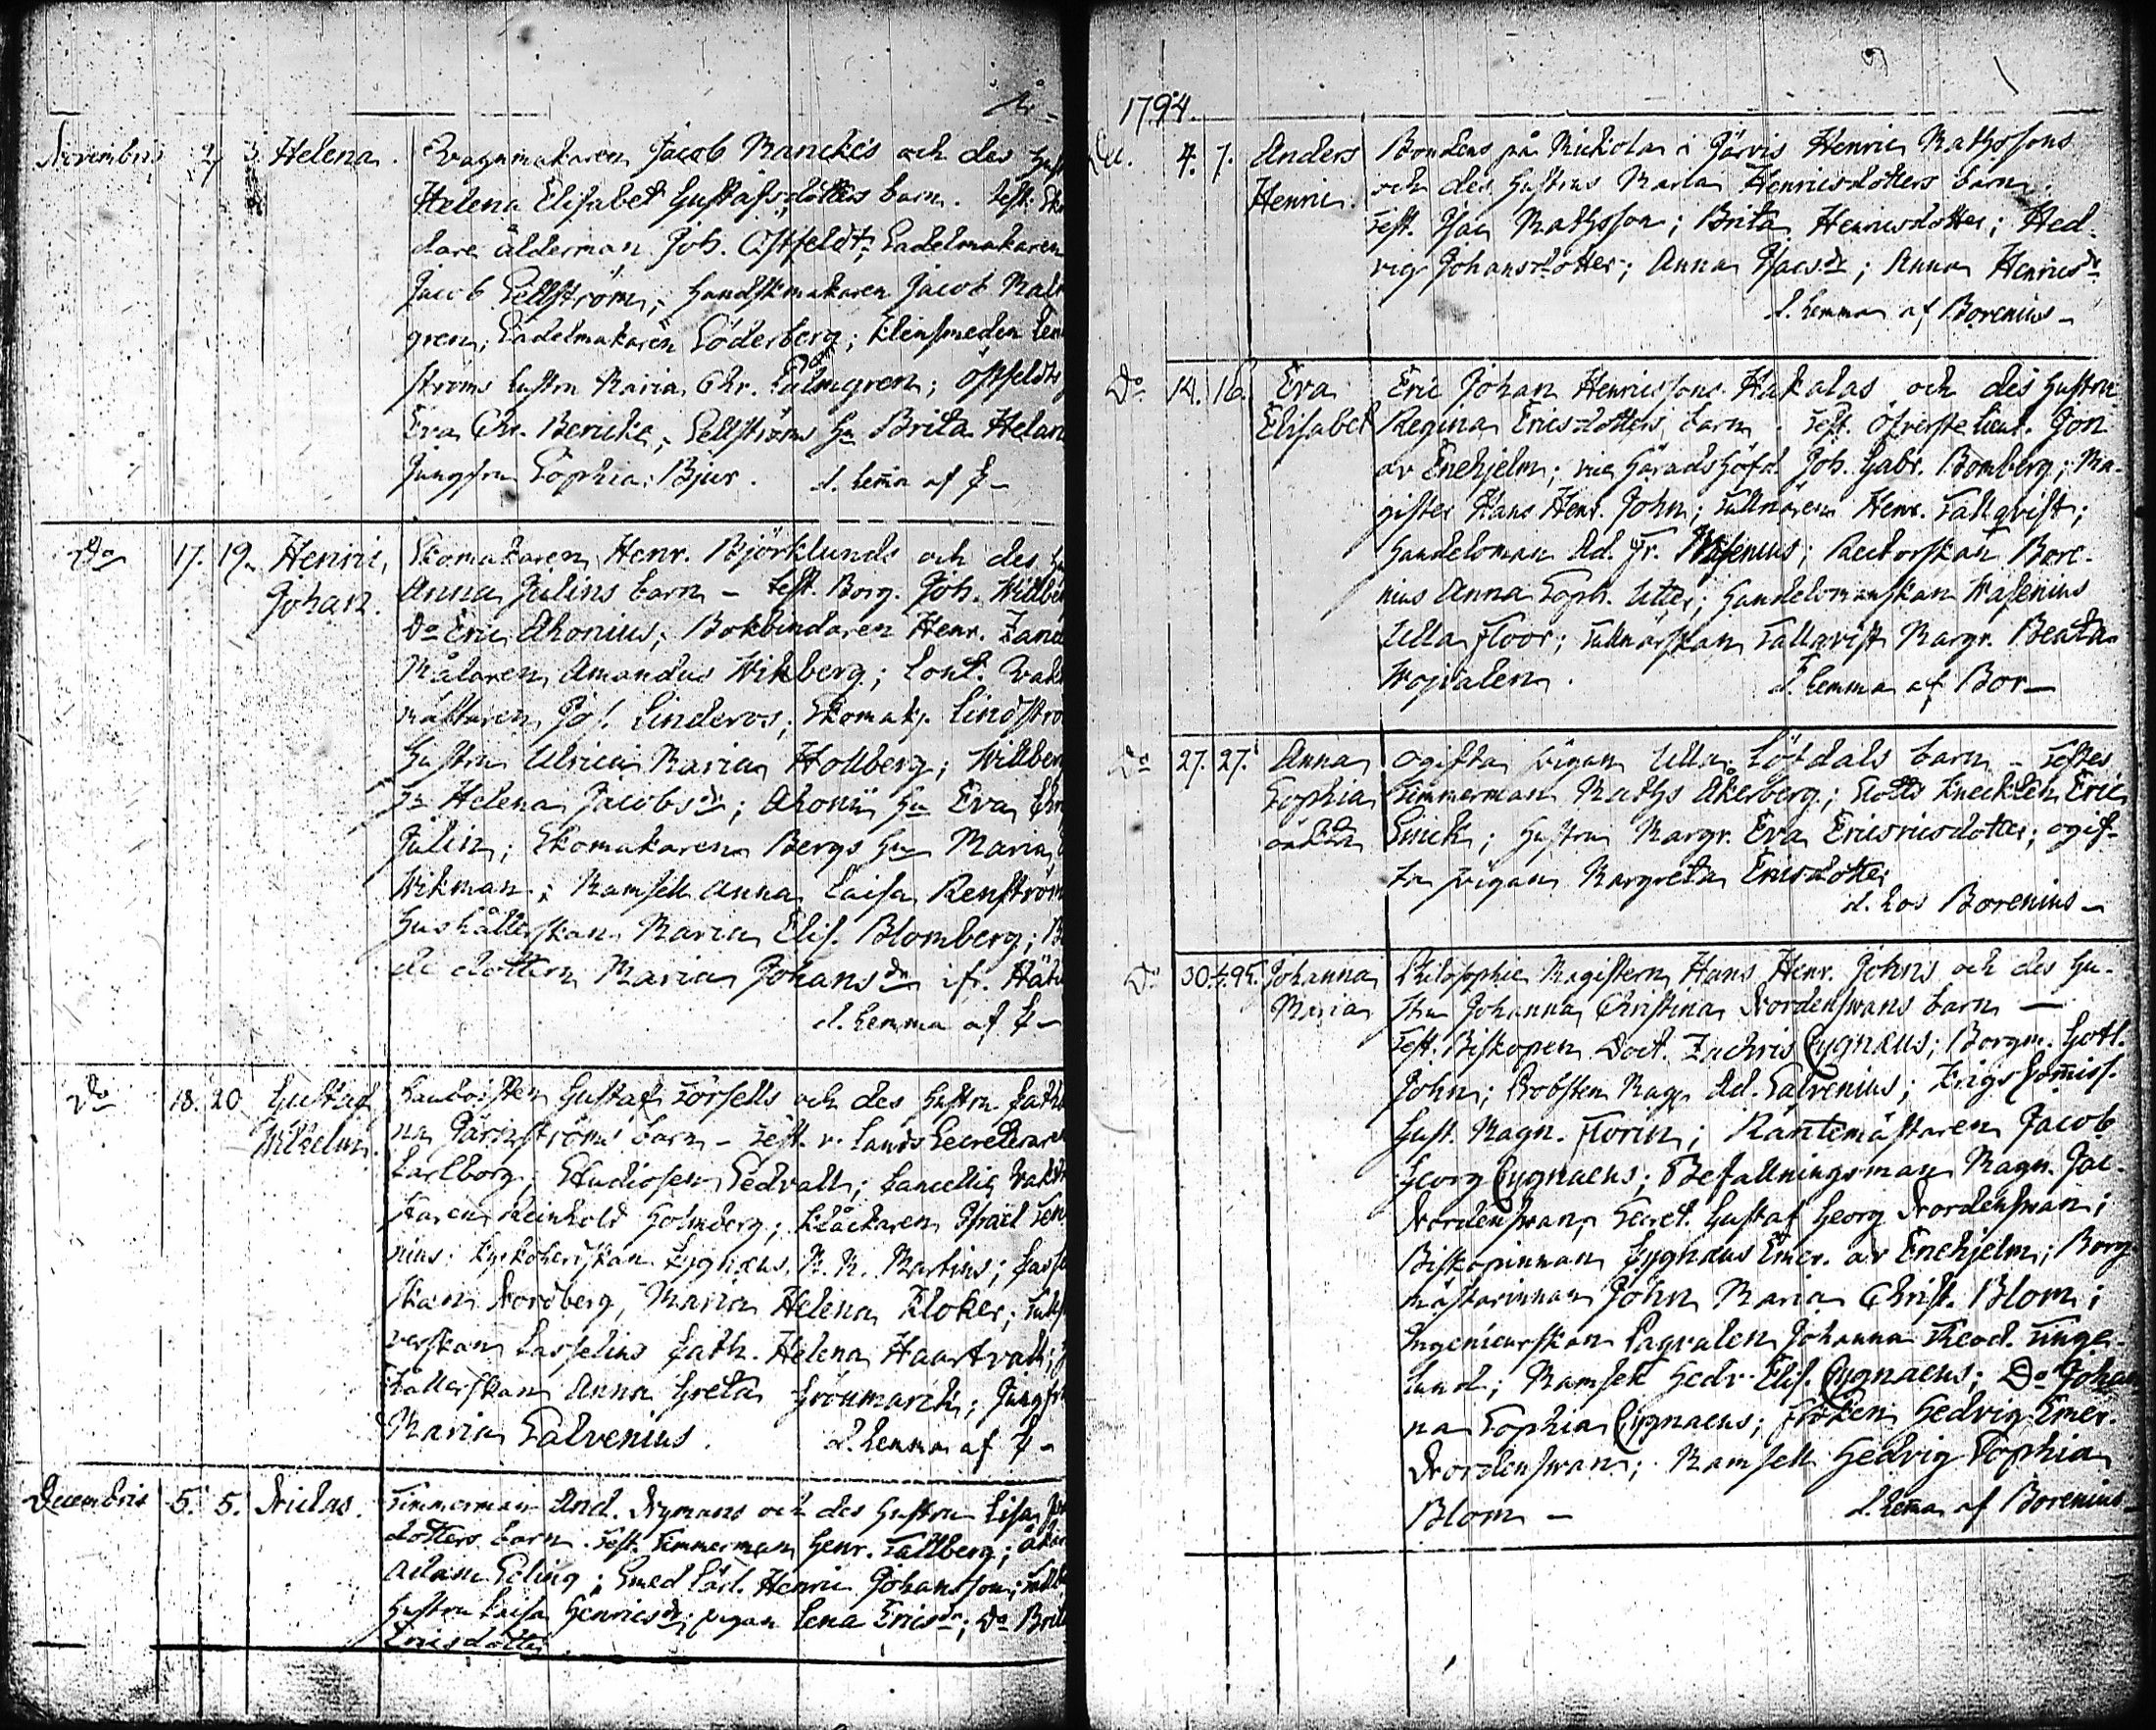 Novembris 2. 3. Helena. Vagnmakaren Jacob Manckes och des
Helena Elisabet Gustafsdotters barn. Test.
dare ålderman Joh. Östfeldt; Sadelmakaren
Jacob Sellström; Handskmakaren Jacob
gren; Sadelmakaren Söderberg; Klensmeden
ströms hustru Maria Chr. Palmgren; Östfeldts
Eva Chr. Bericke; Sellströms Hu Brita
Jungfru Sophia Bjur. d. hema af
Do 17. 19. Henric Skomakaren Henr. Björklunds och des
Johan. Anna Julins barn – test. Borg. Joh.
Do Eric Ahonius; Bokbindaren Henr.
Målaren Amandus Wikberg; Cont.
mästaren Jos. Linderos; Skomak.
Hustru Ulrica Maria Hollberg;
Hu Helena Jacobsdr; Ahonii Hu Eva
Julin; Skomakaren Bergs Hu Maria
Wikman; Mamsell Anna Caisa Renström
Hushållerskan Maria Elis. Blomberg;
dottern Maria Johansdr ifr.
d. hemma af
Do 18. 20 Gustaf Hauboisten Gustaf Törsells och des hustru
Wilhelm. na Gärnströms barn – Test. v. Lands Secreteraren
Carlborg; Studiosen Sedvall; Cancellie
staren Reinhold Holmberg; Klåckaren Israel
nius; Kyrkoherdskan Cygnæus, M. M. Martins;
skan Nordberg, Maria Helena Kloker;
verskan Casselius Cath. Helena Haartvall;
hållerskan Anna Greta Grönmarck;
Maria Salvenius. d. hemma af
Decembris 5. 5. Niclas. Timmerman And. Nymans och des hustru Lisa
dotters barn. Test. Timmerman Henr. Tallberg;
Adam Eding; Smed Lärl. Henric Johansson;
hustru Caisa Henricsdr; pigan Lena Ericsdr; Do
Ericsdotter
1794.
4. 7. Anders Bondens på Nickola i Järvis Henric Mathssons
Henric. och des hustrus Maria Henricsdotters barn.
Test. Isac Mathsson; Brita Henricsdotter; Hed-
vig Johansdotter; Anna Isacsdr; Anna Henricsdr
d. hemma af Borenius –
Do 14. 16. Eva Eric Johan Henricssons Hakalas och des hustru
Elisabet Regina Ericsdotters barn. Test. Öfverste Lieut. Jon
av Enehjelm; vice Häradshöfd. Joh. Gabr. Bomberg; Ma-
gister Hans Henr. John; Tullnären Henr. Tallqvist;
Handelsman Ad. Fr. Wasenius; Rectorskan Bore-
nius Anna Soph. Utter; Handelsmanskan Wasenius
Ulla Floor; Tullnärskan Tallqvist Margr. Beata
d. hemma af Bor –
Do 27. 27. Anna Ogifta pigan Ulla Löfdals barn – Testes
Sophia Timmerman Maths Åkerberg; Slotts Knechten Eric
oäkta Smick; Hustru Margr. Eva Ericsricsdotter; ogif-
ta pigan Margreta Ericsdotter
d. hos Borenius –
Do 30. 4.95. Johanna Philosophie Magistern Hans Henr. Johns och des hu-
Maria stru Johanna Christina Nordenswans barn –
Test. Biskopen Doct. Zachris Cygnæus; Borgm. Gotl.
John; Probsten Mag. Ad. Salvenius; Krigs Commiss.
Gust. Magn. Florin; Räntemästaren Jacob
Georg Cygnaeus; Befallningsman Magn. Jac.
Nordenswan; Secret. Gustaf Georg Nordenswan;
Biskopinnan Cygnæus Emer. av Enehjelm; Borg-
mästarinnan John Maria Christ. Blom;
Ingenieurskan Pagvalen Johanna Theod. Tunge-
lund; Mamsell Hedv. Elis. Cygnaeus; Do Johan-
na Sophia Cygnaeus; Fröken Hedvig Emer.
Nordenswan; Mamsell Hedvig Sophia
Blom – d. hema af Borenius –